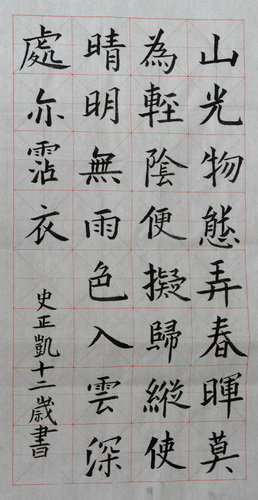 山光物態弄春暉莫
為輕陰便擬歸縱使
晴明無雨色入雲深
處亦霑衣
史正凱十二歲書